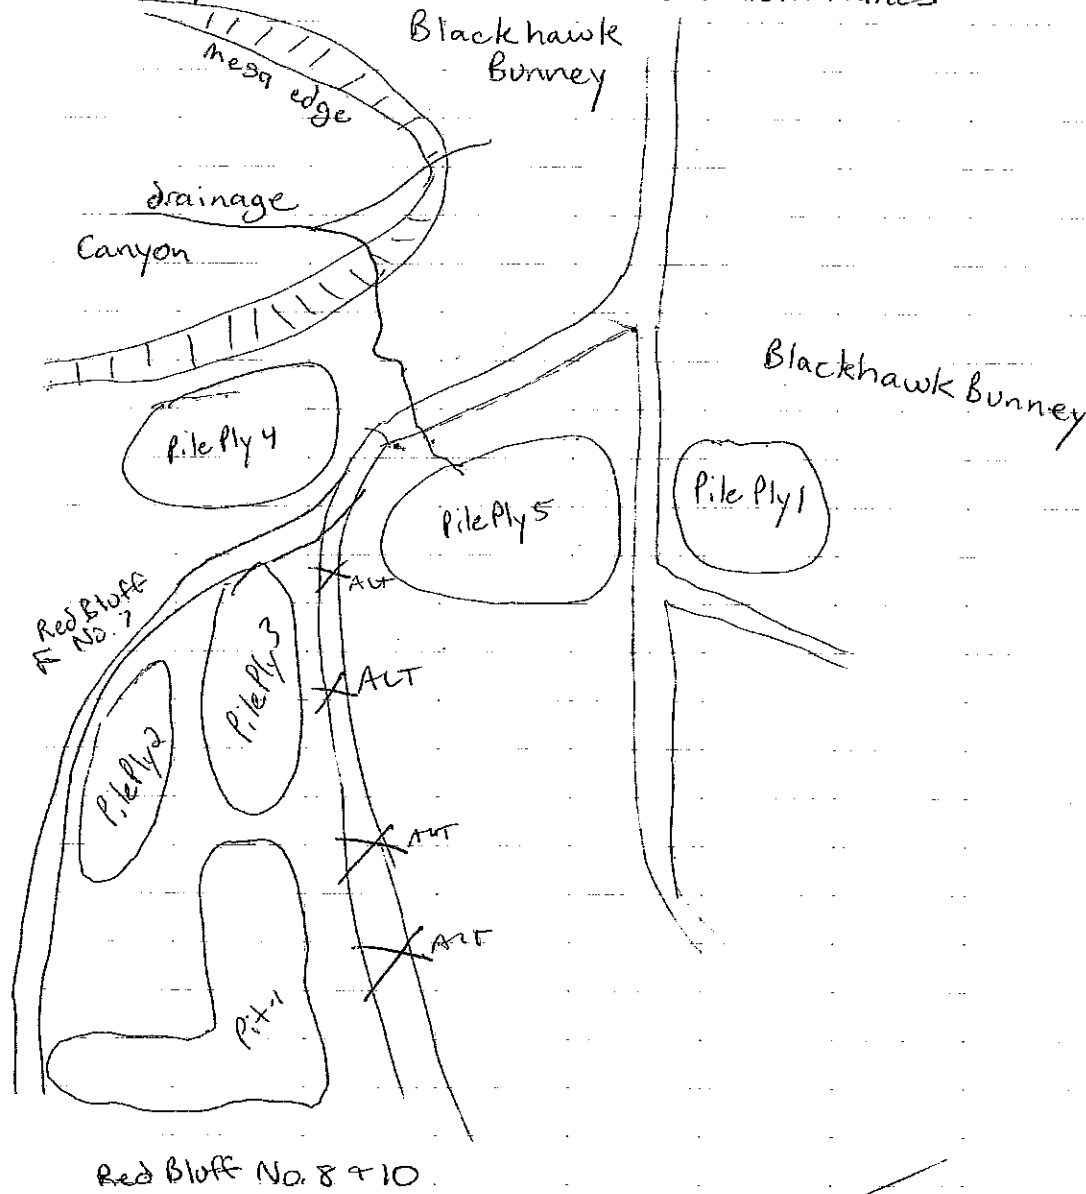 Blackhawk
Bunney
Mesa edge
drainage
Canyon
Blackhawk Bunney
PilePly4
PilePly5
PilePly1
ALT
Red Bluff
PilePly3
ALT
PilePly2
ALT
ALT
Pit-1
Red Bluff No. 8 + 10